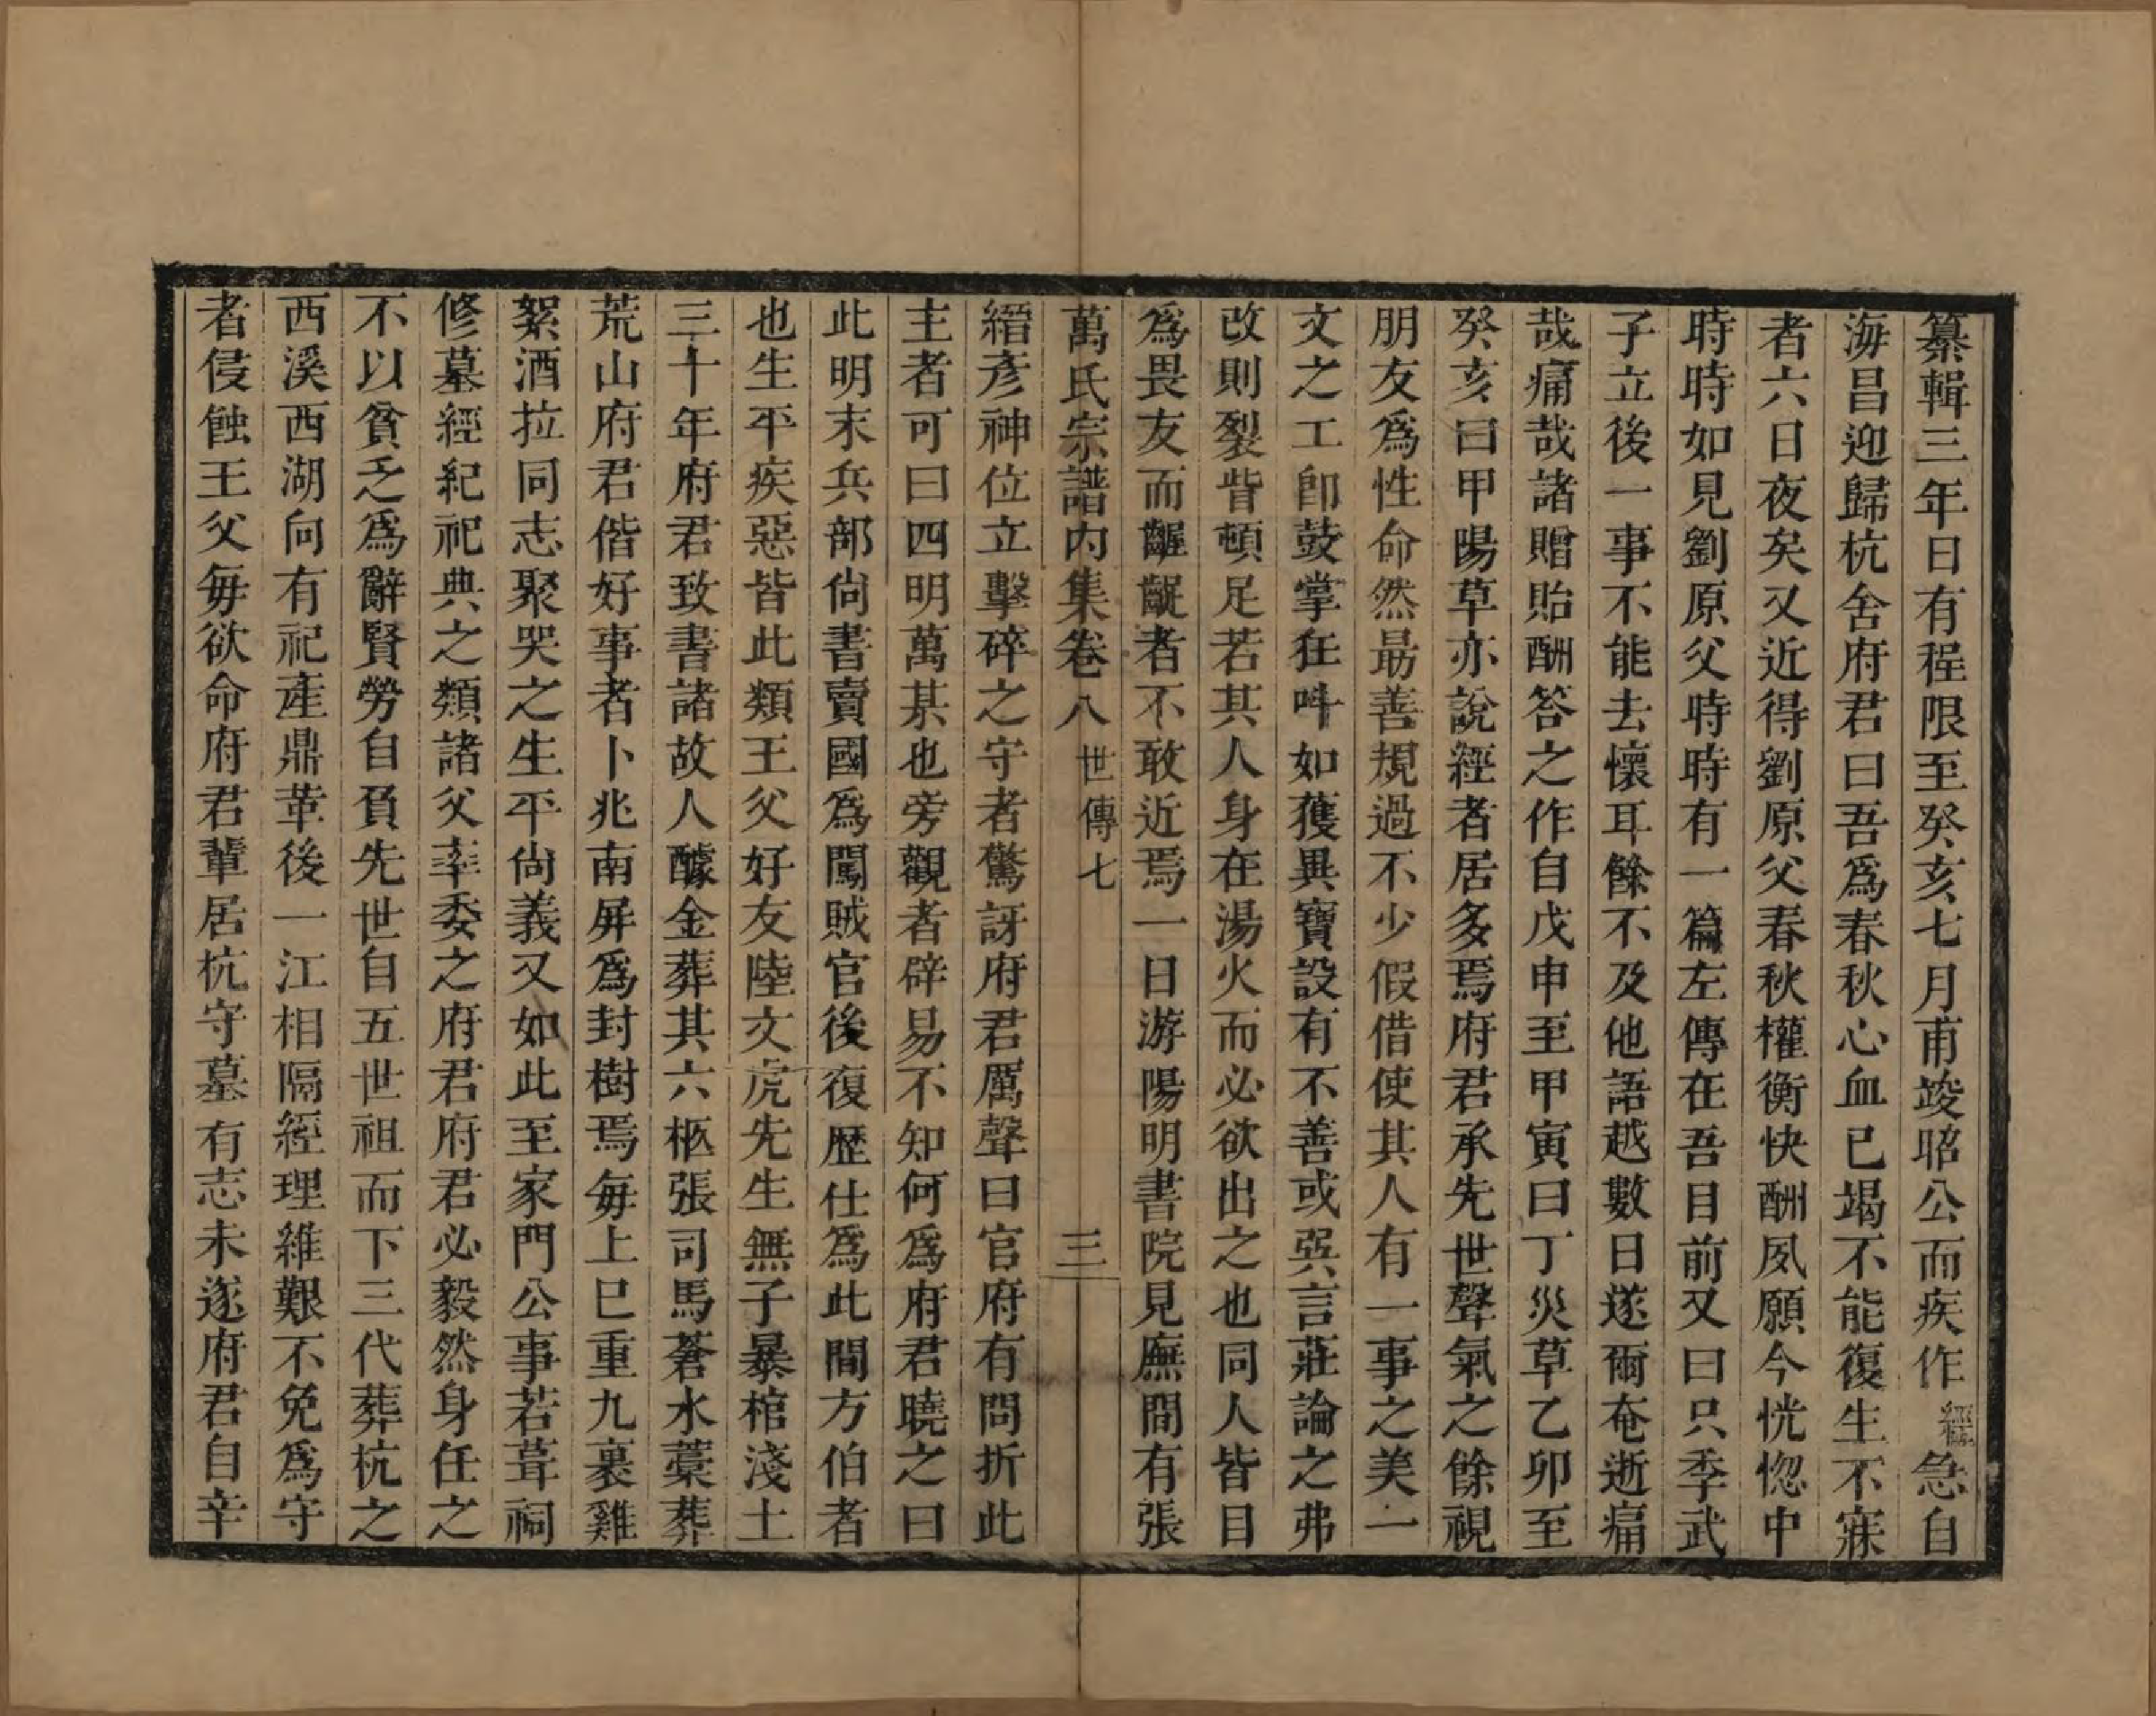 纂輯三年日有程限至癸亥七月甫竣昭公而疾作經急自
海昌迎歸杭舍府君曰吾爲春秋心血已竭不能復生不寐
者六日夜矣又近得劉原父春秋權衡快酬夙願今恍惚中
時時如見劉原父時時有一篇左傳在吾目前又曰只季武
子立後一事不能去懷耳餘不及他語越數日遂爾奄逝痛
哉痛哉諸贈貽酬答之作自戊申至甲寅曰丁災草乙卯至
癸亥曰甲陽草亦說經者居多焉府君承先世聲氣之餘視
朋友爲性命然最善規過不少假借使其人有一事之美一
文之工卽鼓掌狂呌如獲異寶設有不善或巽言莊論之弗
改則裂眥頓足若其人身在湯火而必欲出之也同人皆目
爲畏友而齷齪者不敢近焉一日游陽明書院見廡間有張
萬氏宗譜內集卷八 世傳七 三
縉彥神位立擊碎之守者驚訝府君厲聲曰官府有問折此
主者可曰四明萬某也旁觀者辟易不知何爲府君曉之曰
此明末兵部尙書賣國爲闖賊官後復歷仕爲此間方伯者
也生平疾惡皆此類王父好友陸文虎先生無子暴棺淺土
三十年府君致書諸故人醵金葬其六柩張司馬蒼水藁葬
荒山府君偕好事者卜兆南屏爲封樹焉每上巳重九裹雞
絮酒拉同志聚哭之生平尙義又如此至家門公事若葺祠
修墓經紀祀典之類諸父率委之府君府君必毅然身任之
不以貧乏爲辭賢勞自負先世自五世祖而下三代葬杭之
西溪西湖向有祀產鼎革後一江相隔經理維艱不免爲守
者侵蝕王父每欲命府君輩居杭守墓有志未遂府君自辛